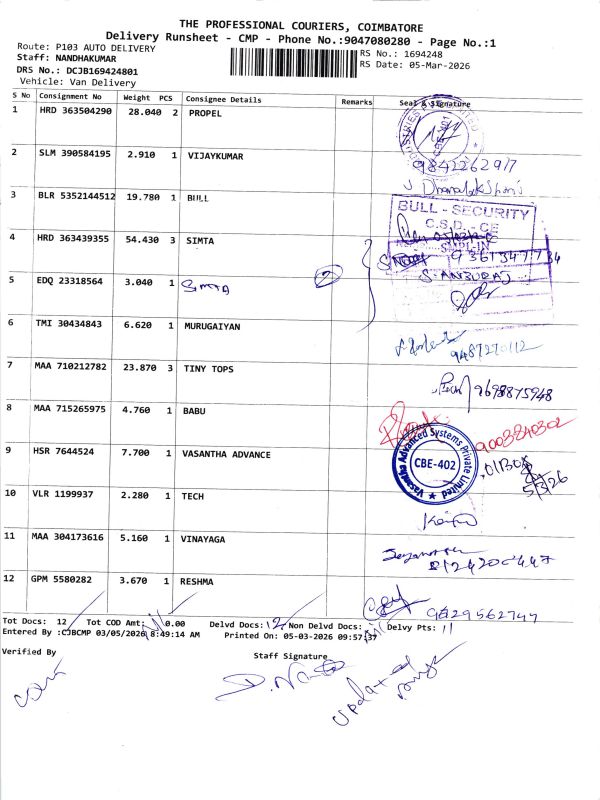 THE PROFESSIONAL COURIERS, COIMBATORE
Delivery Runsheet - CMP - Phone No.:9047080280 - Page No.:1
Route: P103 AUTO DELIVERY
RS No.: 1694248
Staff: NANDHAKUMAR
RS Date: 05-Mar-2026
DRS No.: DCJB169424801
Vehicle: Van Delivery
S No Consignment No Weight PCS Consignee Details Remarks Seal & Signature
1 HRD 363504290 28.040 2 PROPEL
CBE-401
2 SLM 390584195 2.910 1 VIJAYKUMAR
3 BLR 5352144512 19.780 1 BULL
BULL - SECURITY
C.S.D. - CE
4 HRD 363439355 54.430 3 SIMTA
5 EDQ 23318564 3.040 1 SIMTA 2
6 TMI 30434843 6.620 1 MURUGAIYAN
9487270112
7 MAA 710212782 23.870 3 TINY TOPS
9698875948
8 MAA 715265975 4.760 1 BABU
9003840302
9 HSR 7644524 7.700 1 VASANTHA ADVANCE
Vasantha Advanced Systems Private Limited
CBE-402
5/3/26
10 VLR 1199937 2.280 1 TECH
11 MAA 304173616 5.160 1 VINAYAGA
12 GPM 5580282 3.670 1 RESHMA
9629562747
Tot Docs: 12 Tot COD Amt: 0.00 Delvd Docs: 12 Non Delvd Docs: Delvy Pts: 11
Entered By :CJBCMP 03/05/2026 8:49:14 AM Printed On: 05-03-2026 09:57:37
Verified By
Staff Signature
Updated